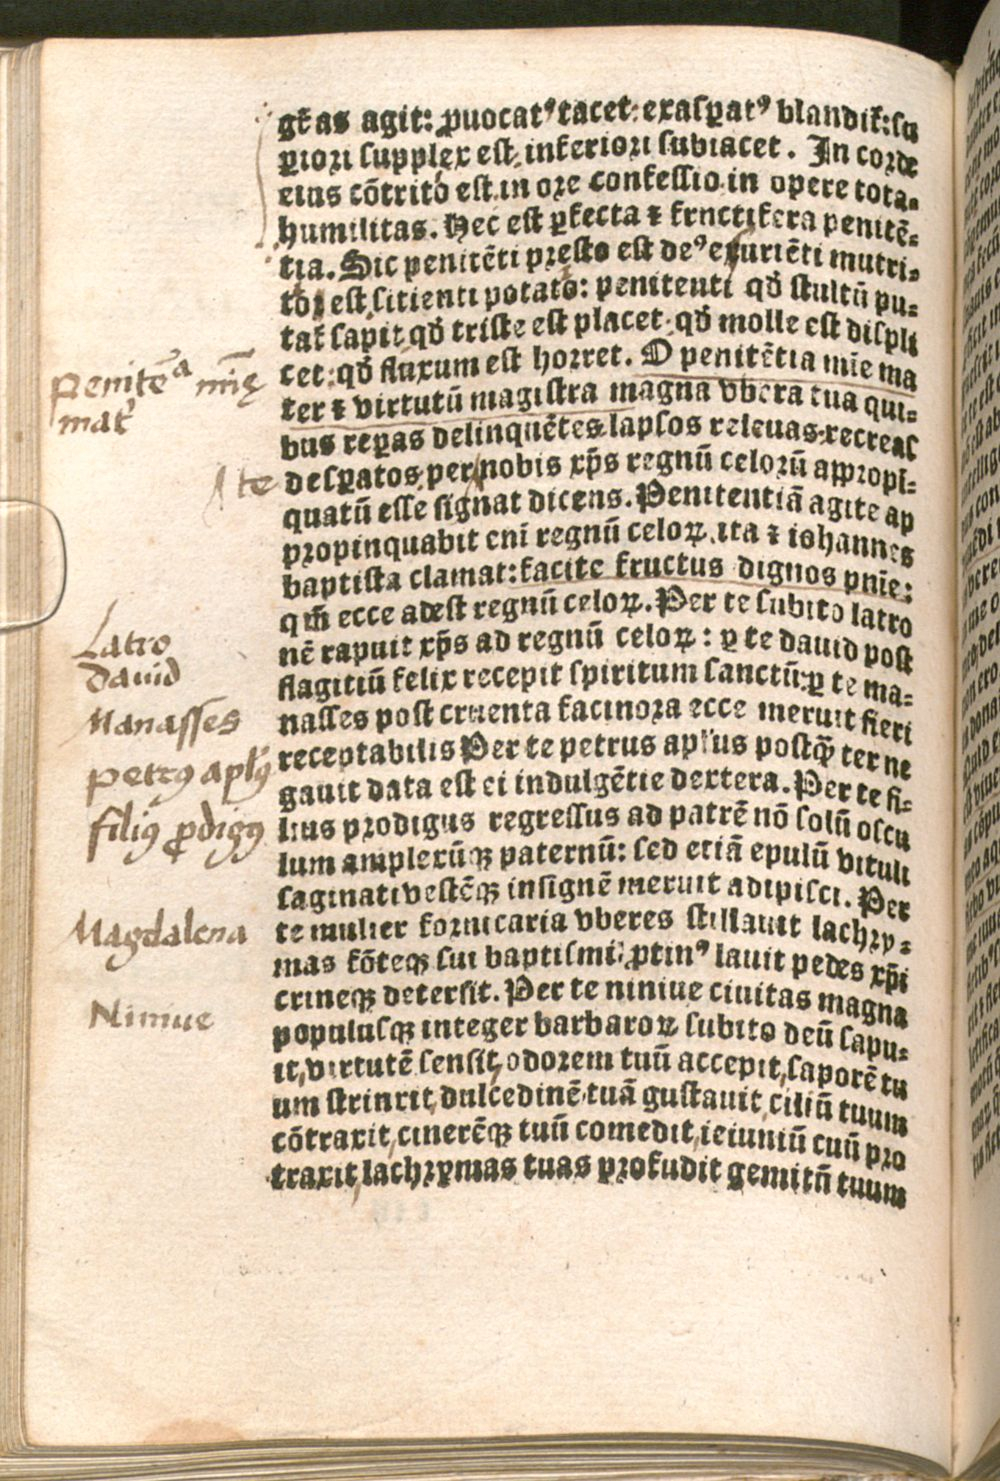 gr̄as agit: ꝓuocatꝰ tacet: exasꝑatꝰ blandit̄: su
ꝑiori supplex est, inferiori subiacet. In corde
eius cōtritō est. in ore confessio. in opere tota-
humilitas. Hec est ꝑfecta ⁊ fructifera penitē-
tia. Sic penitēti presto est deꝰ esuriēti nutri-
tō, est, sitienti potatō: penitenti qd̄ stultū pu-
tat̄ sapit, qd̄ triste est placet. qd̄ molle est displi
cet: qd̄ fluxum est horret. O penitētia mīe ma
ter ⁊ virtutū magistra magna vbera tua qui-
bus reꝑas delinquētes, lapsos releuas. recreas
desꝑatos, per nobis xp̄s regnū celorū appropi-
quatū esse signat dicens. Penitentiā agite ap
propinquabit eni regnū celoꝝ. ita ⁊ iohannes
baptista clamat: facite fructus dignos pnīe:
qm̄ ecce adest regnū celoꝝ. Per te subito latro
nē rapuit xp̄s ad regnū celoꝝ: ꝑ te dauid post
flagitiū felix recepit spiritum sanctū: ꝑ te ma-
nasses post cruenta facinora ecce meruit fieri
receptabilis Per te petrus aplūs postq̄ ter ne
gauit data est ei indulgētie dextera. Per te fi-
lius prodigus regressus ad patrē nō solū oscu
lum amplexūqꝫ paternū: sed etiā epulū vituli
saginati vestēqꝫ insignē meruit adipisci. Per
te mulier fornicaria vberes stillauit lachry-
mas fōteqꝫ sui baptismi: ꝓtinꝰ lauit pedes xp̄i
crineqꝫ detersit. Per te niniue ciuitas magna
populusqꝫ integer barbaroꝝ subito deū sapu-
it, virtutē sensit, odorem tuū accepit, saporē tu
um strinxit, dulcedinē tuā gustauit, ciliū tuum
cōtraxit, cinerēqꝫ tuū comedit, ieiuniū cuū pro
traxit lachrymas tuas profudit gemitū tuum
penitēa mīę
mat̄
te
Latro
Dauid
Manasses
Petrꝰ aplꝰ
filiꝰ ꝓdigꝰ
Magdalena
Niniue